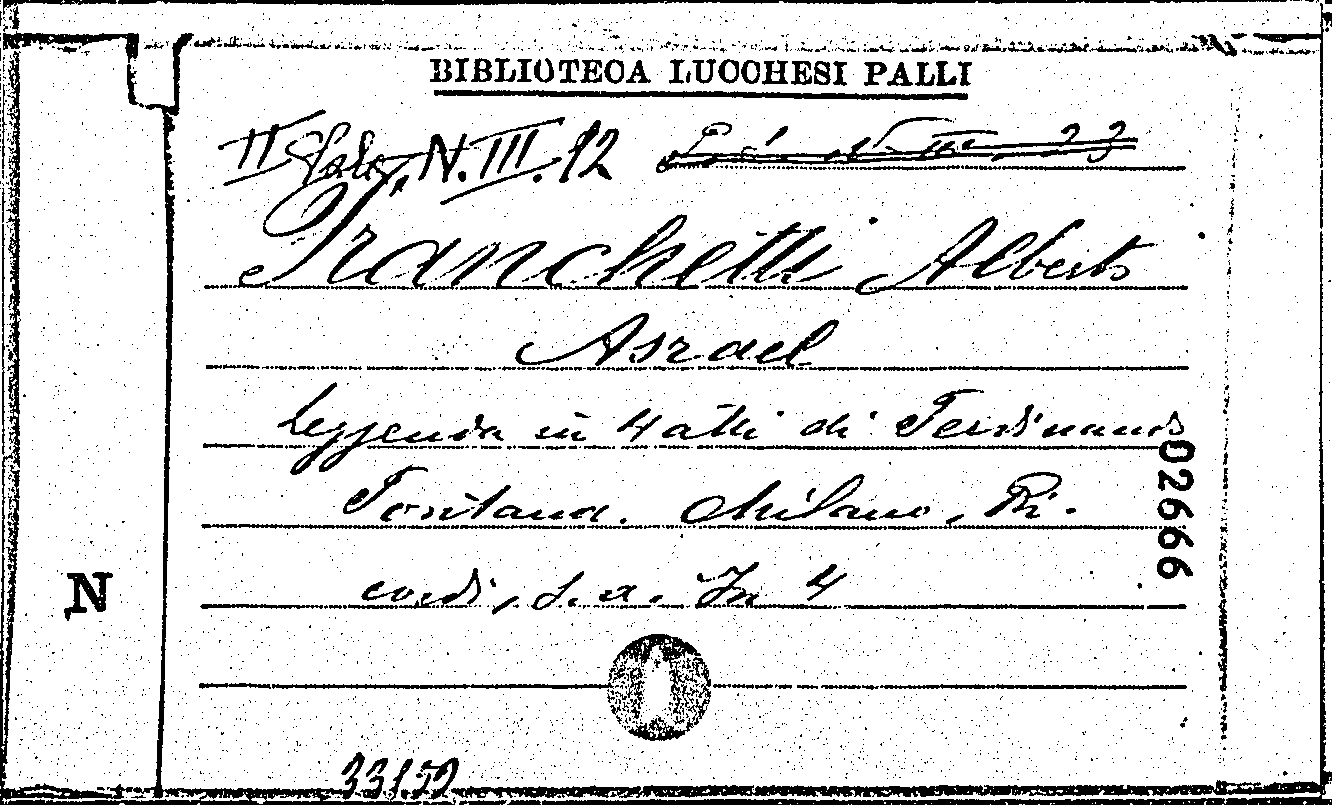 BIBLIOTECA LUCCHESI PALLI
II Sala N. III. 12
Franchetti Alberto
Asrael
Leggenda in 4 atti di Ferdinando
Fontana. Milano, Ri-
cordi, s. a. In 4
02666
N
33152